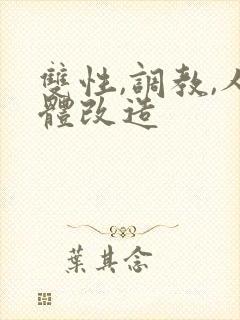 雙性,調教,人
體改造
葉其念